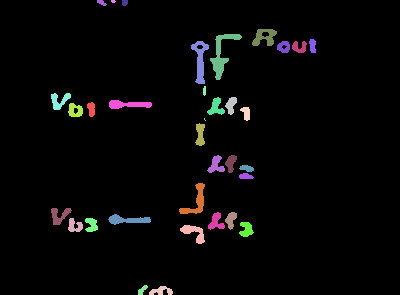 Rout
Vb1
M1
M2
Vb3
M3